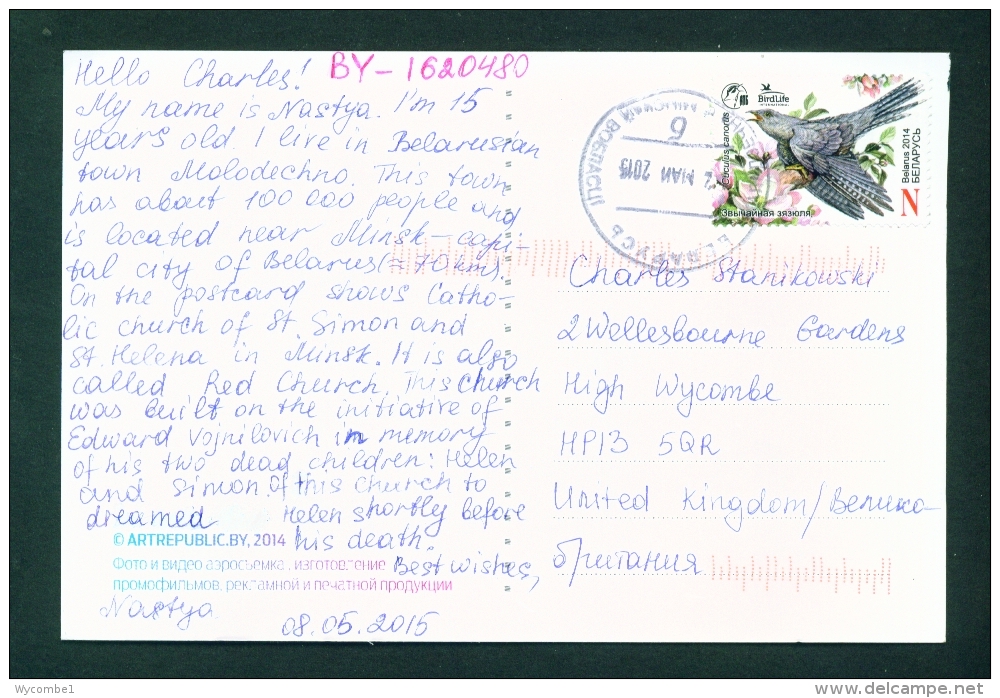 Hello Charles! BY-1620480
My name is Nastya. I'm 15
years old. I live in Belarusian
town Molodechno. This town
has about 100 000 people and
is located near Minsk-capi-
tal city of Belarus(≈70kms).
On the postcard shows Catho-
lic church of St. Simon and
St. Helena in Minsk. It is also
called Red Church. This church
was built on the initiative of
Edward Vojnilovich in memory
of his two dead children: Helen
and Simon. Of this church to
dreamed Helen shortly before
his death.
© ARTREPUBLIC.BY, 2014
Фото и видео аэросъемка, изготовление
промофильмов, рекламной и печатной продукции
Best wishes,
Nastya
08.05.2015
BirdLife
INTERNATIONAL
Cuculus canorus
Звычайная зязюля
Belarus 2014
БЕЛАРУСЬ
N
6
МАЙ 2015
БЕЛАРУСЬ
Charles Stanikowski
2 Wellesbourne Gardens
High Wycombe
HP13 5QR
United Kingdom/Велико-
британия
Wycombe1
delcampe.net